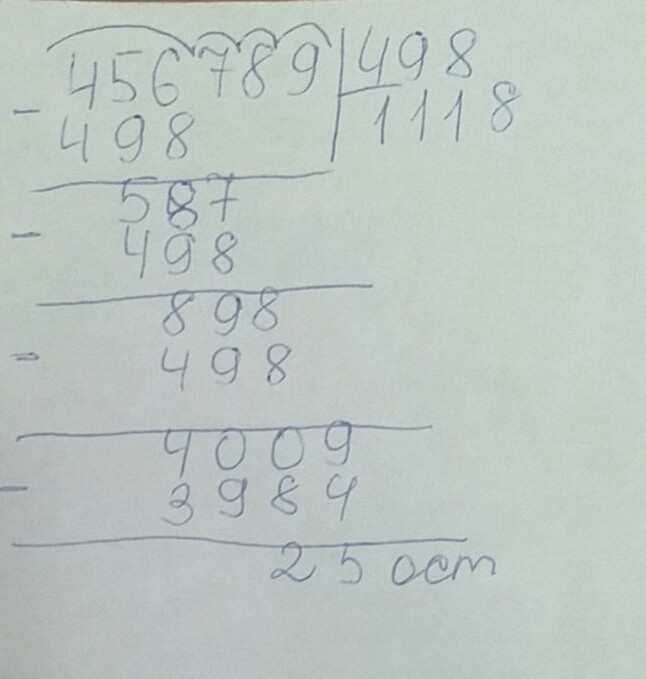 456789 498
- 498 1118
587
- 498
898
- 498
4009
- 3984
25 ост